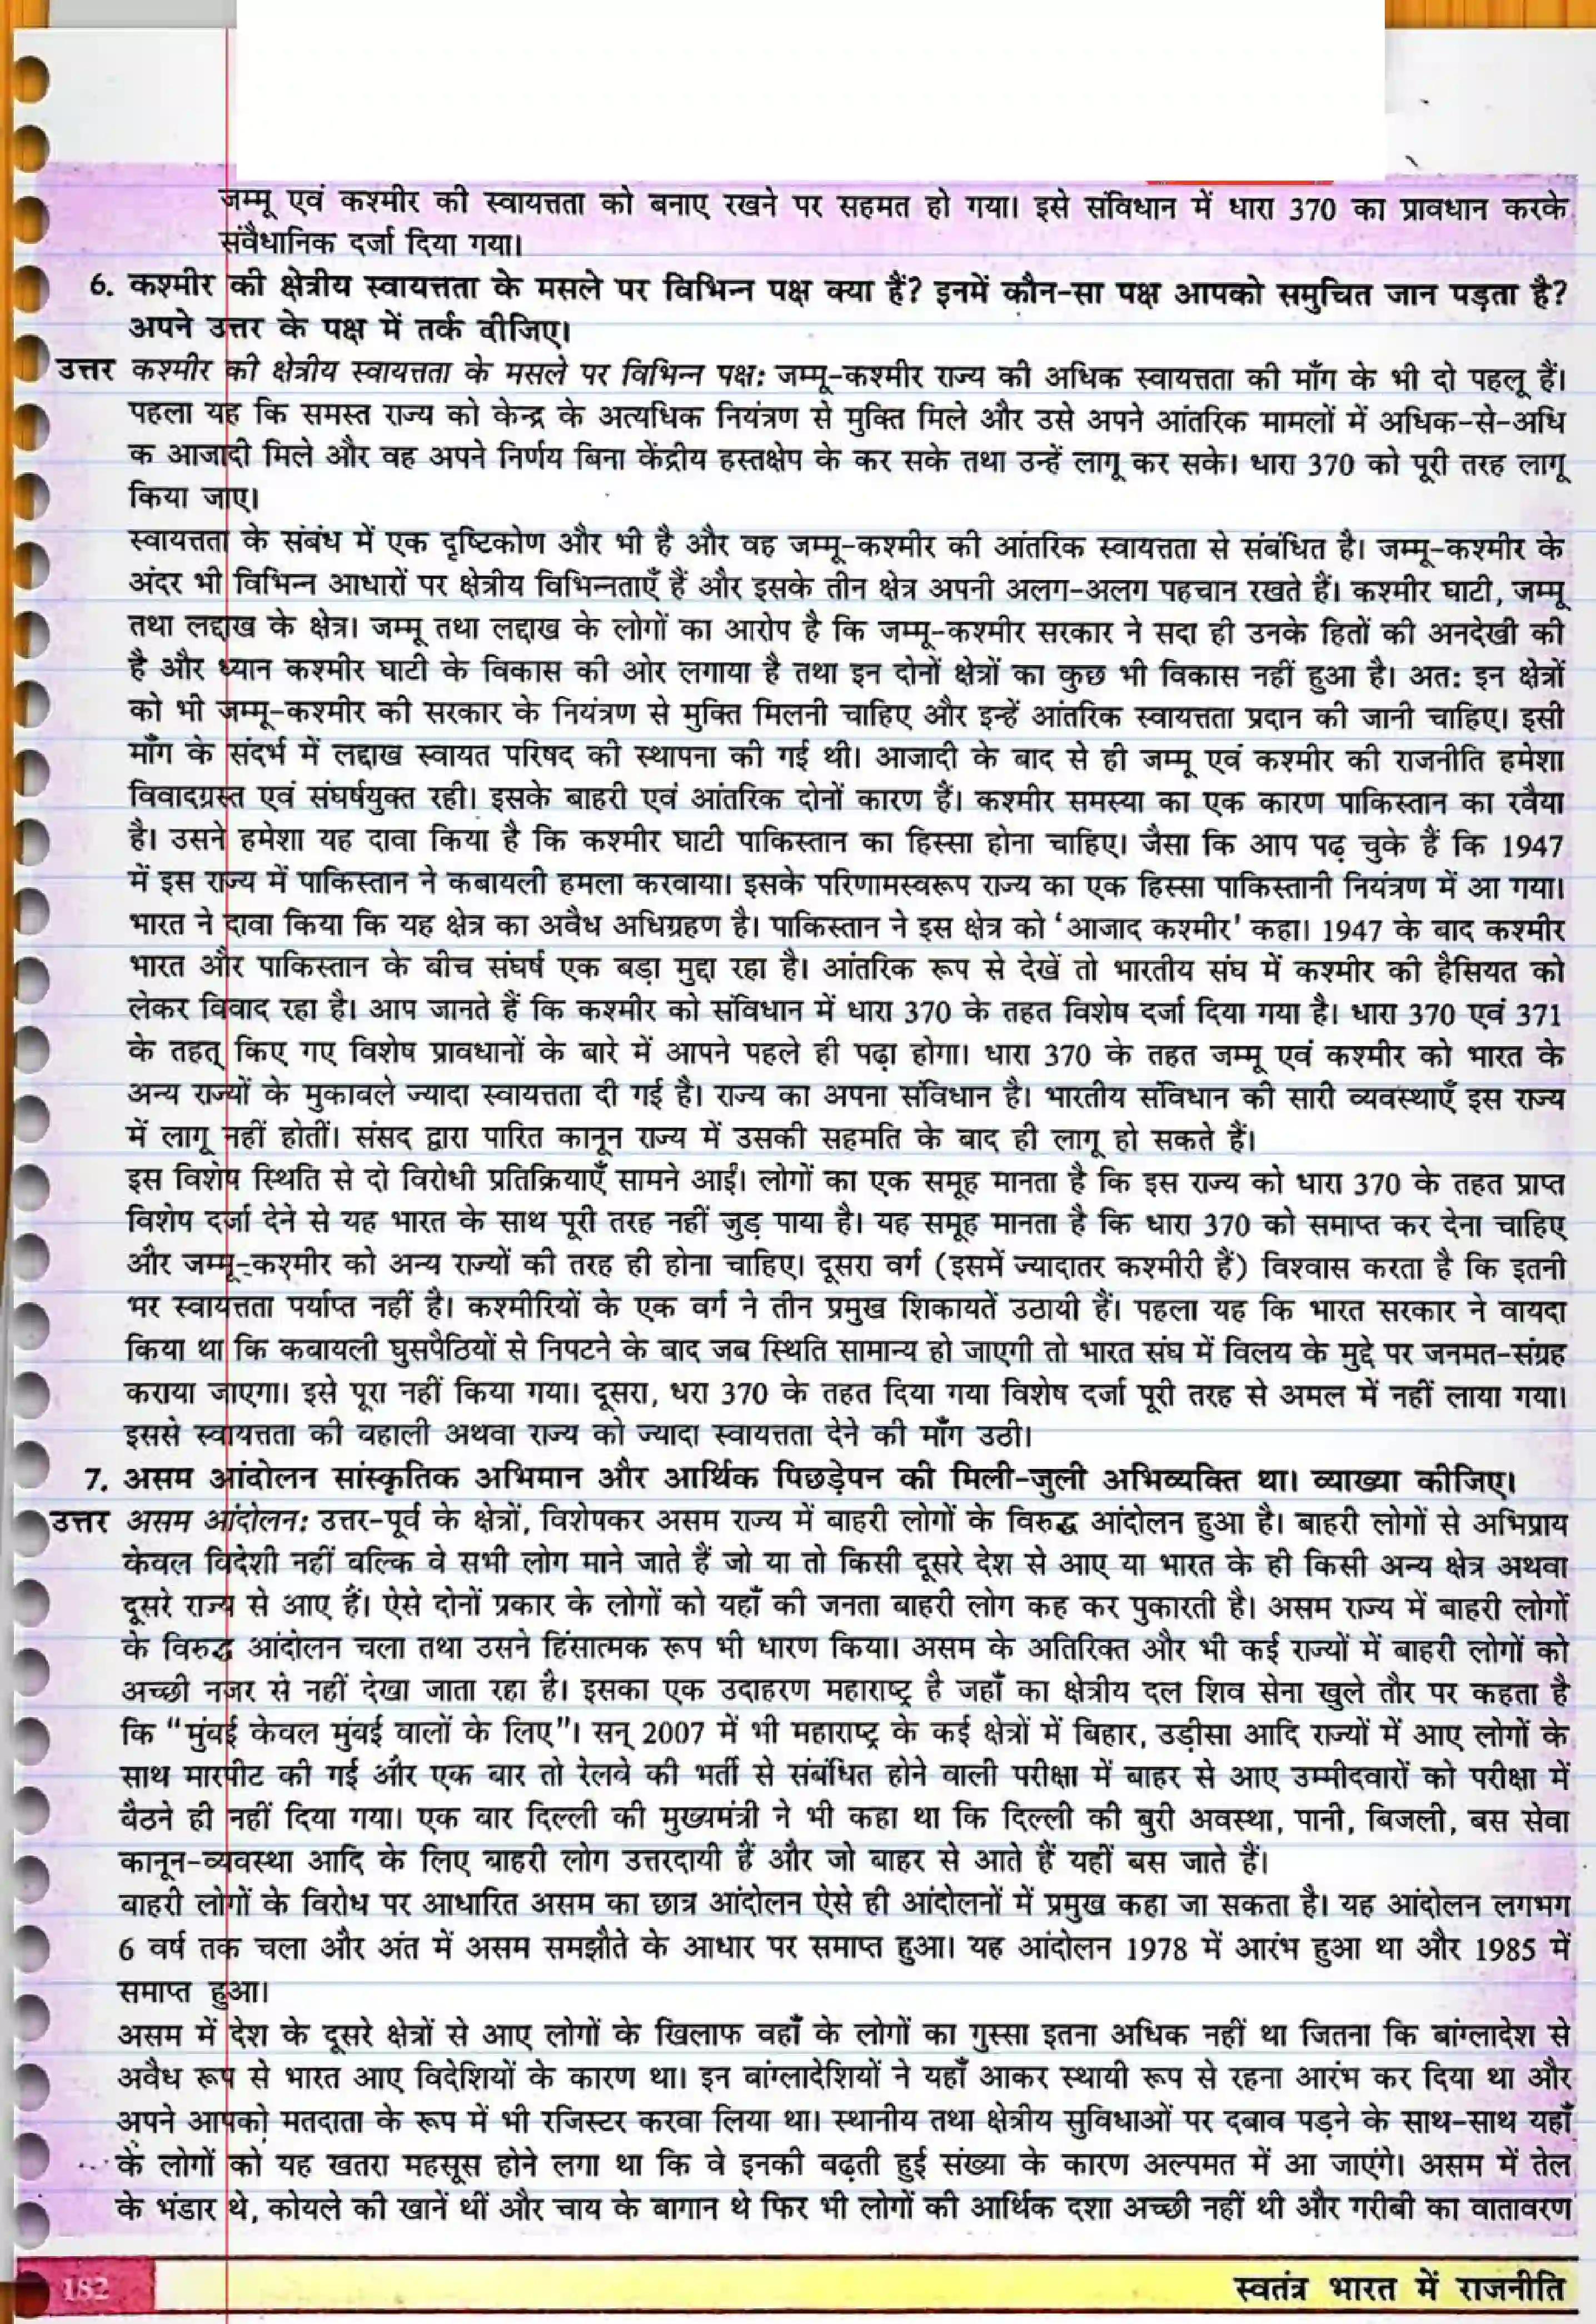 जम्मू एवं कश्मीर की स्वायत्तता को बनाए रखने पर सहमत हो गया। इसे संविधान में धारा 370 का प्रावधान करके
संवैधानिक दर्जा दिया गया।
6. कश्मीर की क्षेत्रीय स्वायत्तता के मसले पर विभिन्न पक्ष क्या हैं? इनमें कौन-सा पक्ष आपको समुचित जान पड़ता है?
अपने उत्तर के पक्ष में तर्क दीजिए।
उत्तर कश्मीर की क्षेत्रीय स्वायत्तता के मसले पर विभिन्न पक्ष: जम्मू-कश्मीर राज्य की अधिक स्वायत्तता की माँग के भी दो पहलू हैं।
पहला यह कि समस्त राज्य को केन्द्र के अत्यधिक नियंत्रण से मुक्ति मिले और उसे अपने आंतरिक मामलों में अधिक-से-अधि
क आजादी मिले और वह अपने निर्णय बिना केंद्रीय हस्तक्षेप के कर सके तथा उन्हें लागू कर सके। धारा 370 को पूरी तरह लागू
किया जाए।
स्वायत्तता के संबंध में एक दृष्टिकोण और भी है और वह जम्मू-कश्मीर की आंतरिक स्वायत्तता से संबंधित है। जम्मू-कश्मीर के
अंदर भी विभिन्न आधारों पर क्षेत्रीय विभिन्नताएँ हैं और इसके तीन क्षेत्र अपनी अलग-अलग पहचान रखते हैं। कश्मीर घाटी, जम्मू
तथा लद्दाख के क्षेत्र। जम्मू तथा लद्दाख के लोगों का आरोप है कि जम्मू-कश्मीर सरकार ने सदा ही उनके हितों की अनदेखी की
है और ध्यान कश्मीर घाटी के विकास की ओर लगाया है तथा इन दोनों क्षेत्रों का कुछ भी विकास नहीं हुआ है। अत: इन क्षेत्रों
को भी जम्मू-कश्मीर की सरकार के नियंत्रण से मुक्ति मिलनी चाहिए और इन्हें आंतरिक स्वायत्तता प्रदान की जानी चाहिए। इसी
माँग के संदर्भ में लद्दाख स्वायत परिषद की स्थापना की गई थी। आजादी के बाद से ही जम्मू एवं कश्मीर की राजनीति हमेशा
विवादग्रस्त एवं संघर्षयुक्त रही। इसके बाहरी एवं आंतरिक दोनों कारण हैं। कश्मीर समस्या का एक कारण पाकिस्तान का रवैया
है। उसने हमेशा यह दावा किया है कि कश्मीर घाटी पाकिस्तान का हिस्सा होना चाहिए। जैसा कि आप पढ़ चुके हैं कि 1947
में इस राज्य में पाकिस्तान ने कबायली हमला करवाया। इसके परिणामस्वरूप राज्य का एक हिस्सा पाकिस्तानी नियंत्रण में आ गया।
भारत ने दावा किया कि यह क्षेत्र का अवैध अधिग्रहण है। पाकिस्तान ने इस क्षेत्र को ‘आजाद कश्मीर’ कहा। 1947 के बाद कश्मीर
भारत और पाकिस्तान के बीच संघर्ष एक बड़ा मुद्दा रहा है। आंतरिक रूप से देखें तो भारतीय संघ में कश्मीर की हैसियत को
लेकर विवाद रहा है। आप जानते हैं कि कश्मीर को संविधान में धारा 370 के तहत विशेष दर्जा दिया गया है। धारा 370 एवं 371
के तहत् किए गए विशेष प्रावधानों के बारे में आपने पहले ही पढ़ा होगा। धारा 370 के तहत जम्मू एवं कश्मीर को भारत के
अन्य राज्यों के मुकाबले ज्यादा स्वायत्तता दी गई है। राज्य का अपना संविधान है। भारतीय संविधान की सारी व्यवस्थाएँ इस राज्य
में लागू नहीं होतीं। संसद द्वारा पारित कानून राज्य में उसकी सहमति के बाद ही लागू हो सकते हैं।
इस विशेष स्थिति से दो विरोधी प्रतिक्रियाएँ सामने आईं। लोगों का एक समूह मानता है कि इस राज्य को धारा 370 के तहत प्राप्त
विशेष दर्जा देने से यह भारत के साथ पूरी तरह नहीं जुड़ पाया है। यह समूह मानता है कि धारा 370 को समाप्त कर देना चाहिए
और जम्मू-कश्मीर को अन्य राज्यों की तरह ही होना चाहिए। दूसरा वर्ग (इसमें ज्यादातर कश्मीरी हैं) विश्वास करता है कि इतनी
भर स्वायत्तता पर्याप्त नहीं है। कश्मीरियों के एक वर्ग ने तीन प्रमुख शिकायतें उठायी हैं। पहला यह कि भारत सरकार ने वायदा
किया था कि कबायली घुसपैठियों से निपटने के बाद जब स्थिति सामान्य हो जाएगी तो भारत संघ में विलय के मुद्दे पर जनमत-संग्रह
कराया जाएगा। इसे पूरा नहीं किया गया। दूसरा, धरा 370 के तहत दिया गया विशेष दर्जा पूरी तरह से अमल में नहीं लाया गया।
इससे स्वायत्तता की बहाली अथवा राज्य को ज्यादा स्वायत्तता देने की माँग उठी।
7. असम आंदोलन सांस्कृतिक अभिमान और आर्थिक पिछड़ेपन की मिली-जुली अभिव्यक्ति था। व्याख्या कीजिए।
उत्तर असम आंदोलन: उत्तर-पूर्व के क्षेत्रों, विशेषकर असम राज्य में बाहरी लोगों के विरुद्ध आंदोलन हुआ है। बाहरी लोगों से अभिप्राय
केवल विदेशी नहीं बल्कि वे सभी लोग माने जाते हैं जो या तो किसी दूसरे देश से आए या भारत के ही किसी अन्य क्षेत्र अथवा
दूसरे राज्य से आए हैं। ऐसे दोनों प्रकार के लोगों को यहाँ की जनता बाहरी लोग कह कर पुकारती है। असम राज्य में बाहरी लोगों
के विरुद्ध आंदोलन चला तथा उसने हिंसात्मक रूप भी धारण किया। असम के अतिरिक्त और भी कई राज्यों में बाहरी लोगों को
अच्छी नजर से नहीं देखा जाता रहा है। इसका एक उदाहरण महाराष्ट्र है जहाँ का क्षेत्रीय दल शिव सेना खुले तौर पर कहता है
कि “मुंबई केवल मुंबई वालों के लिए”। सन् 2007 में भी महाराष्ट्र के कई क्षेत्रों में बिहार, उड़ीसा आदि राज्यों में आए लोगों के
साथ मारपीट की गई और एक बार तो रेलवे की भर्ती से संबंधित होने वाली परीक्षा में बाहर से आए उम्मीदवारों को परीक्षा में
बैठने ही नहीं दिया गया। एक बार दिल्ली की मुख्यमंत्री ने भी कहा था कि दिल्ली की बुरी अवस्था, पानी, बिजली, बस सेवा
कानून-व्यवस्था आदि के लिए बाहरी लोग उत्तरदायी हैं और जो बाहर से आते हैं यहीं बस जाते हैं।
बाहरी लोगों के विरोध पर आधारित असम का छात्र आंदोलन ऐसे ही आंदोलनों में प्रमुख कहा जा सकता है। यह आंदोलन लगभग
6 वर्ष तक चला और अंत में असम समझौते के आधार पर समाप्त हुआ। यह आंदोलन 1978 में आरंभ हुआ था और 1985 में
समाप्त हुआ।
असम में देश के दूसरे क्षेत्रों से आए लोगों के खिलाफ वहाँ के लोगों का गुस्सा इतना अधिक नहीं था जितना कि बांग्लादेश से
अवैध रूप से भारत आए विदेशियों के कारण था। इन बांग्लादेशियों ने यहाँ आकर स्थायी रूप से रहना आरंभ कर दिया था और
अपने आपको मतदाता के रूप में भी रजिस्टर करवा लिया था। स्थानीय तथा क्षेत्रीय सुविधाओं पर दबाव पड़ने के साथ-साथ यहाँ
के लोगों को यह खतरा महसूस होने लगा था कि वे इनकी बढ़ती हुई संख्या के कारण अल्पमत में आ जाएंगे। असम में तेल
के भंडार थे, कोयले की खानें थीं और चाय के बागान थे फिर भी लोगों की आर्थिक दशा अच्छी नहीं थी और गरीबी का वातावरण
182
स्वतंत्र भारत में राजनीति